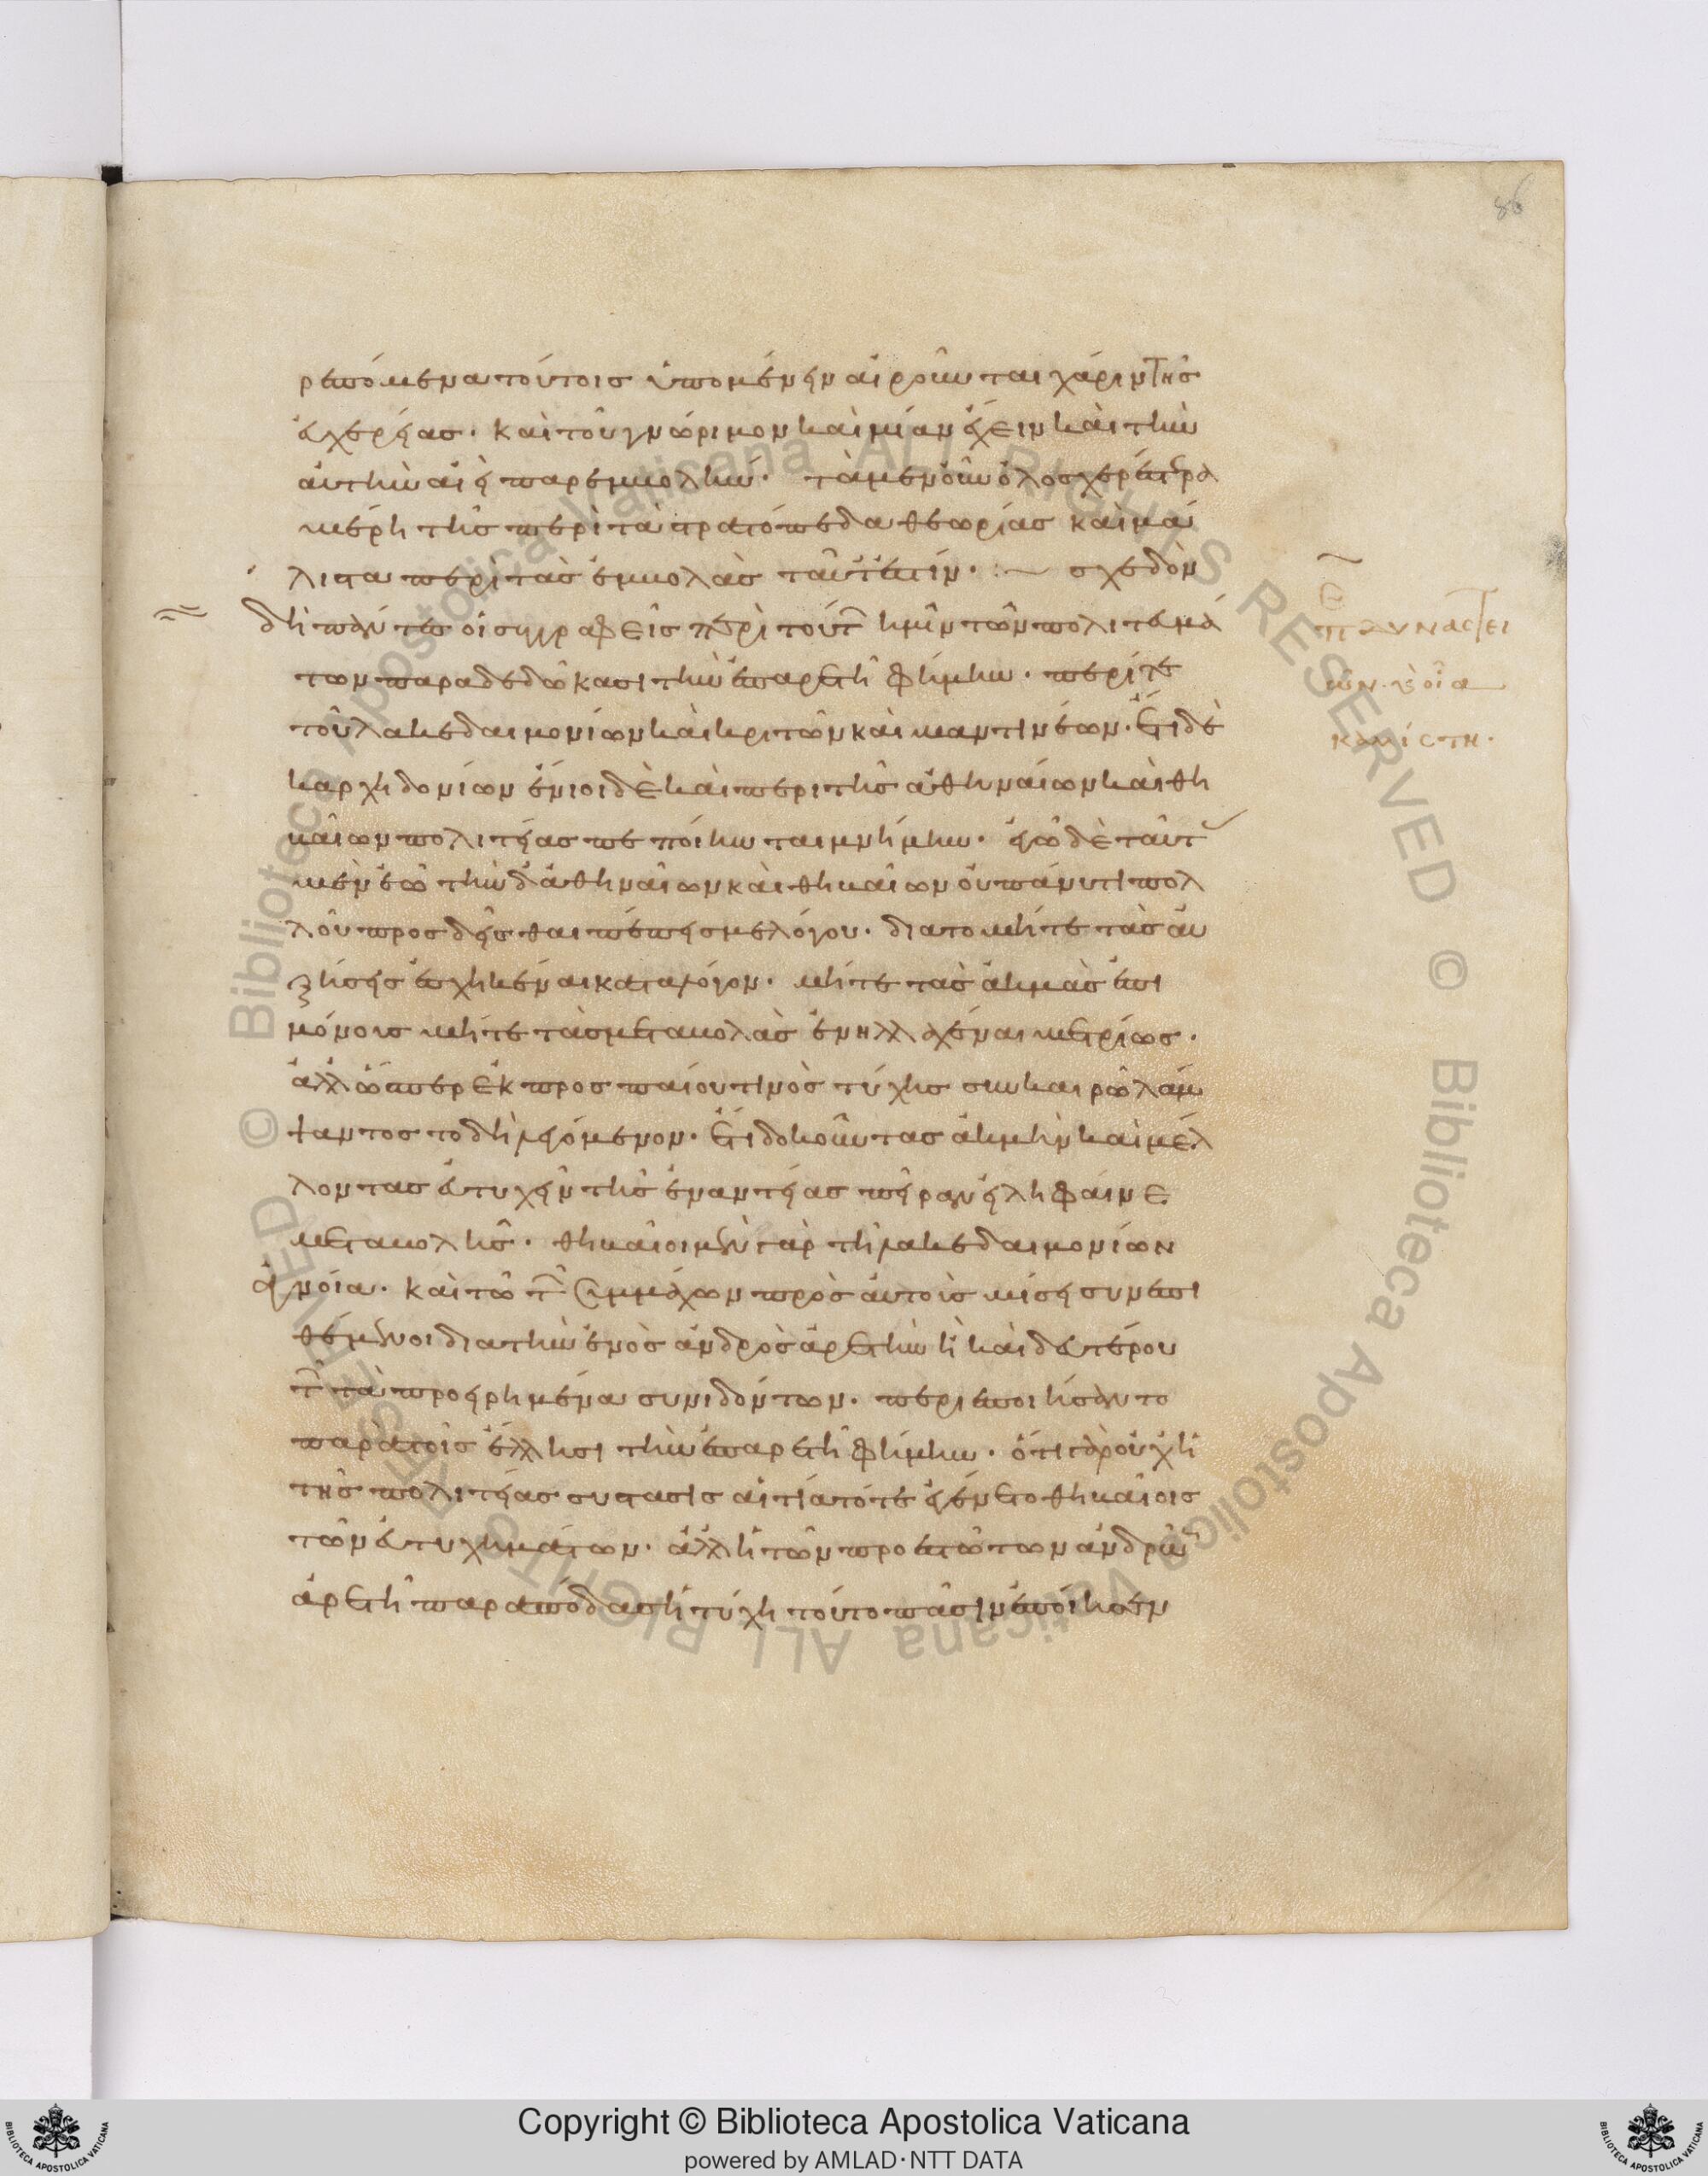 86
ρεπόμενα τούτοις ὑπομένειν αἱροῦνται χάριν τῆς
εὐχερείας. καὶ τοῦ γνώριμον καὶ μίαν ἔχειν καὶ τὴν
αὐτὴν αἰεὶ παρεμβολήν. τὰ μὲν οὖν ὁλοσχερέστερα
μέρη τῆς περὶ τὰ στρατόπεδα θεωρίας καὶ μά
λιστα περὶ τὰς ἐμβολὰς ταῦτ' ἐστίν. :~ σχεδὸν
δὴ πάντες οἱ συγγραφεῖς περὶ τούτων ἡμῖν τῶν πολιτευμά
των παραδεδώκασι τὴν ἐπ' ἀρετῆ φήμην. περί τε
τοῦ λακεδαιμονίων καὶ κριτῶν καὶ μαντινέων. ἔτι δὲ
καρχηδονίων ἔνιοι δὲ καὶ περὶ τῆς ἀθηναίων καὶ θη
βαίων πολιτείας πεποίηνται μνήμην. ἐγὼ δὲ ταῦτα
μὲν ἐῶ τὴν δ' ἀθηναίων καὶ θηβαίων οὐ πάνυ τι πολ
λοῦ προσδεῖσθαι πέπεισμαι λόγου. διὰ τὸ μήτε τὰς αὐ
ξήσεις ἐσχηκέναι κατὰ λόγον. μήτε τὰς ἀκμὰς ἐπι
μόνους μήτε τὰς μεταβολὰς ἐνηλλαχέναι μετρίως.
ἀλλ' ὥσπερ ἐκ προσπαίου τινὸς τύχης σὺν καιρῷ λάμ
ψαντος τὸ δὴ λεγόμενον. ἔτι δοκοῦντας ἀκμὴν καὶ μέλ
λοντας εὐτυχεῖν τῆς ἐναντίας πεῖραν εἰληφέναι
μεταβολῆς. θηβαῖοι μὲν γὰρ τῆ λακεδαιμονίων
ἀγνοία. καὶ τῶ τῶν συμμάχων πρὸς αὐτοὺς μίσει συνεπι
θέμενοι διὰ τὴν ἑνὸς ἀνδρὸς ἀρετὴν ἢ καὶ δευτέρου
τῶν τὰ προειρημένα συνιδόντων. περιεποιήσαντο
παρὰ τοῖς ἕλλησι τὴν ἐπ' ἀρετῆ φήμην. ὅτι γὰρ οὐχ ἡ
τῆς πολιτείας σύστασις αἰτία τότε ἐγένετο θηβαίοις
τῶν εὐτυχημάτων. ἀλλ' ἡ τῶν προεστώτων ἀνδρῶν
ἀρετὴ παρὰ πόδας ἡ τύχη τοῦτο πᾶσιν ἐποίησεν